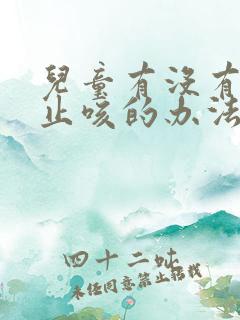 兒童有沒有
止咳的办法
四十二妕
未经同意禁止转载